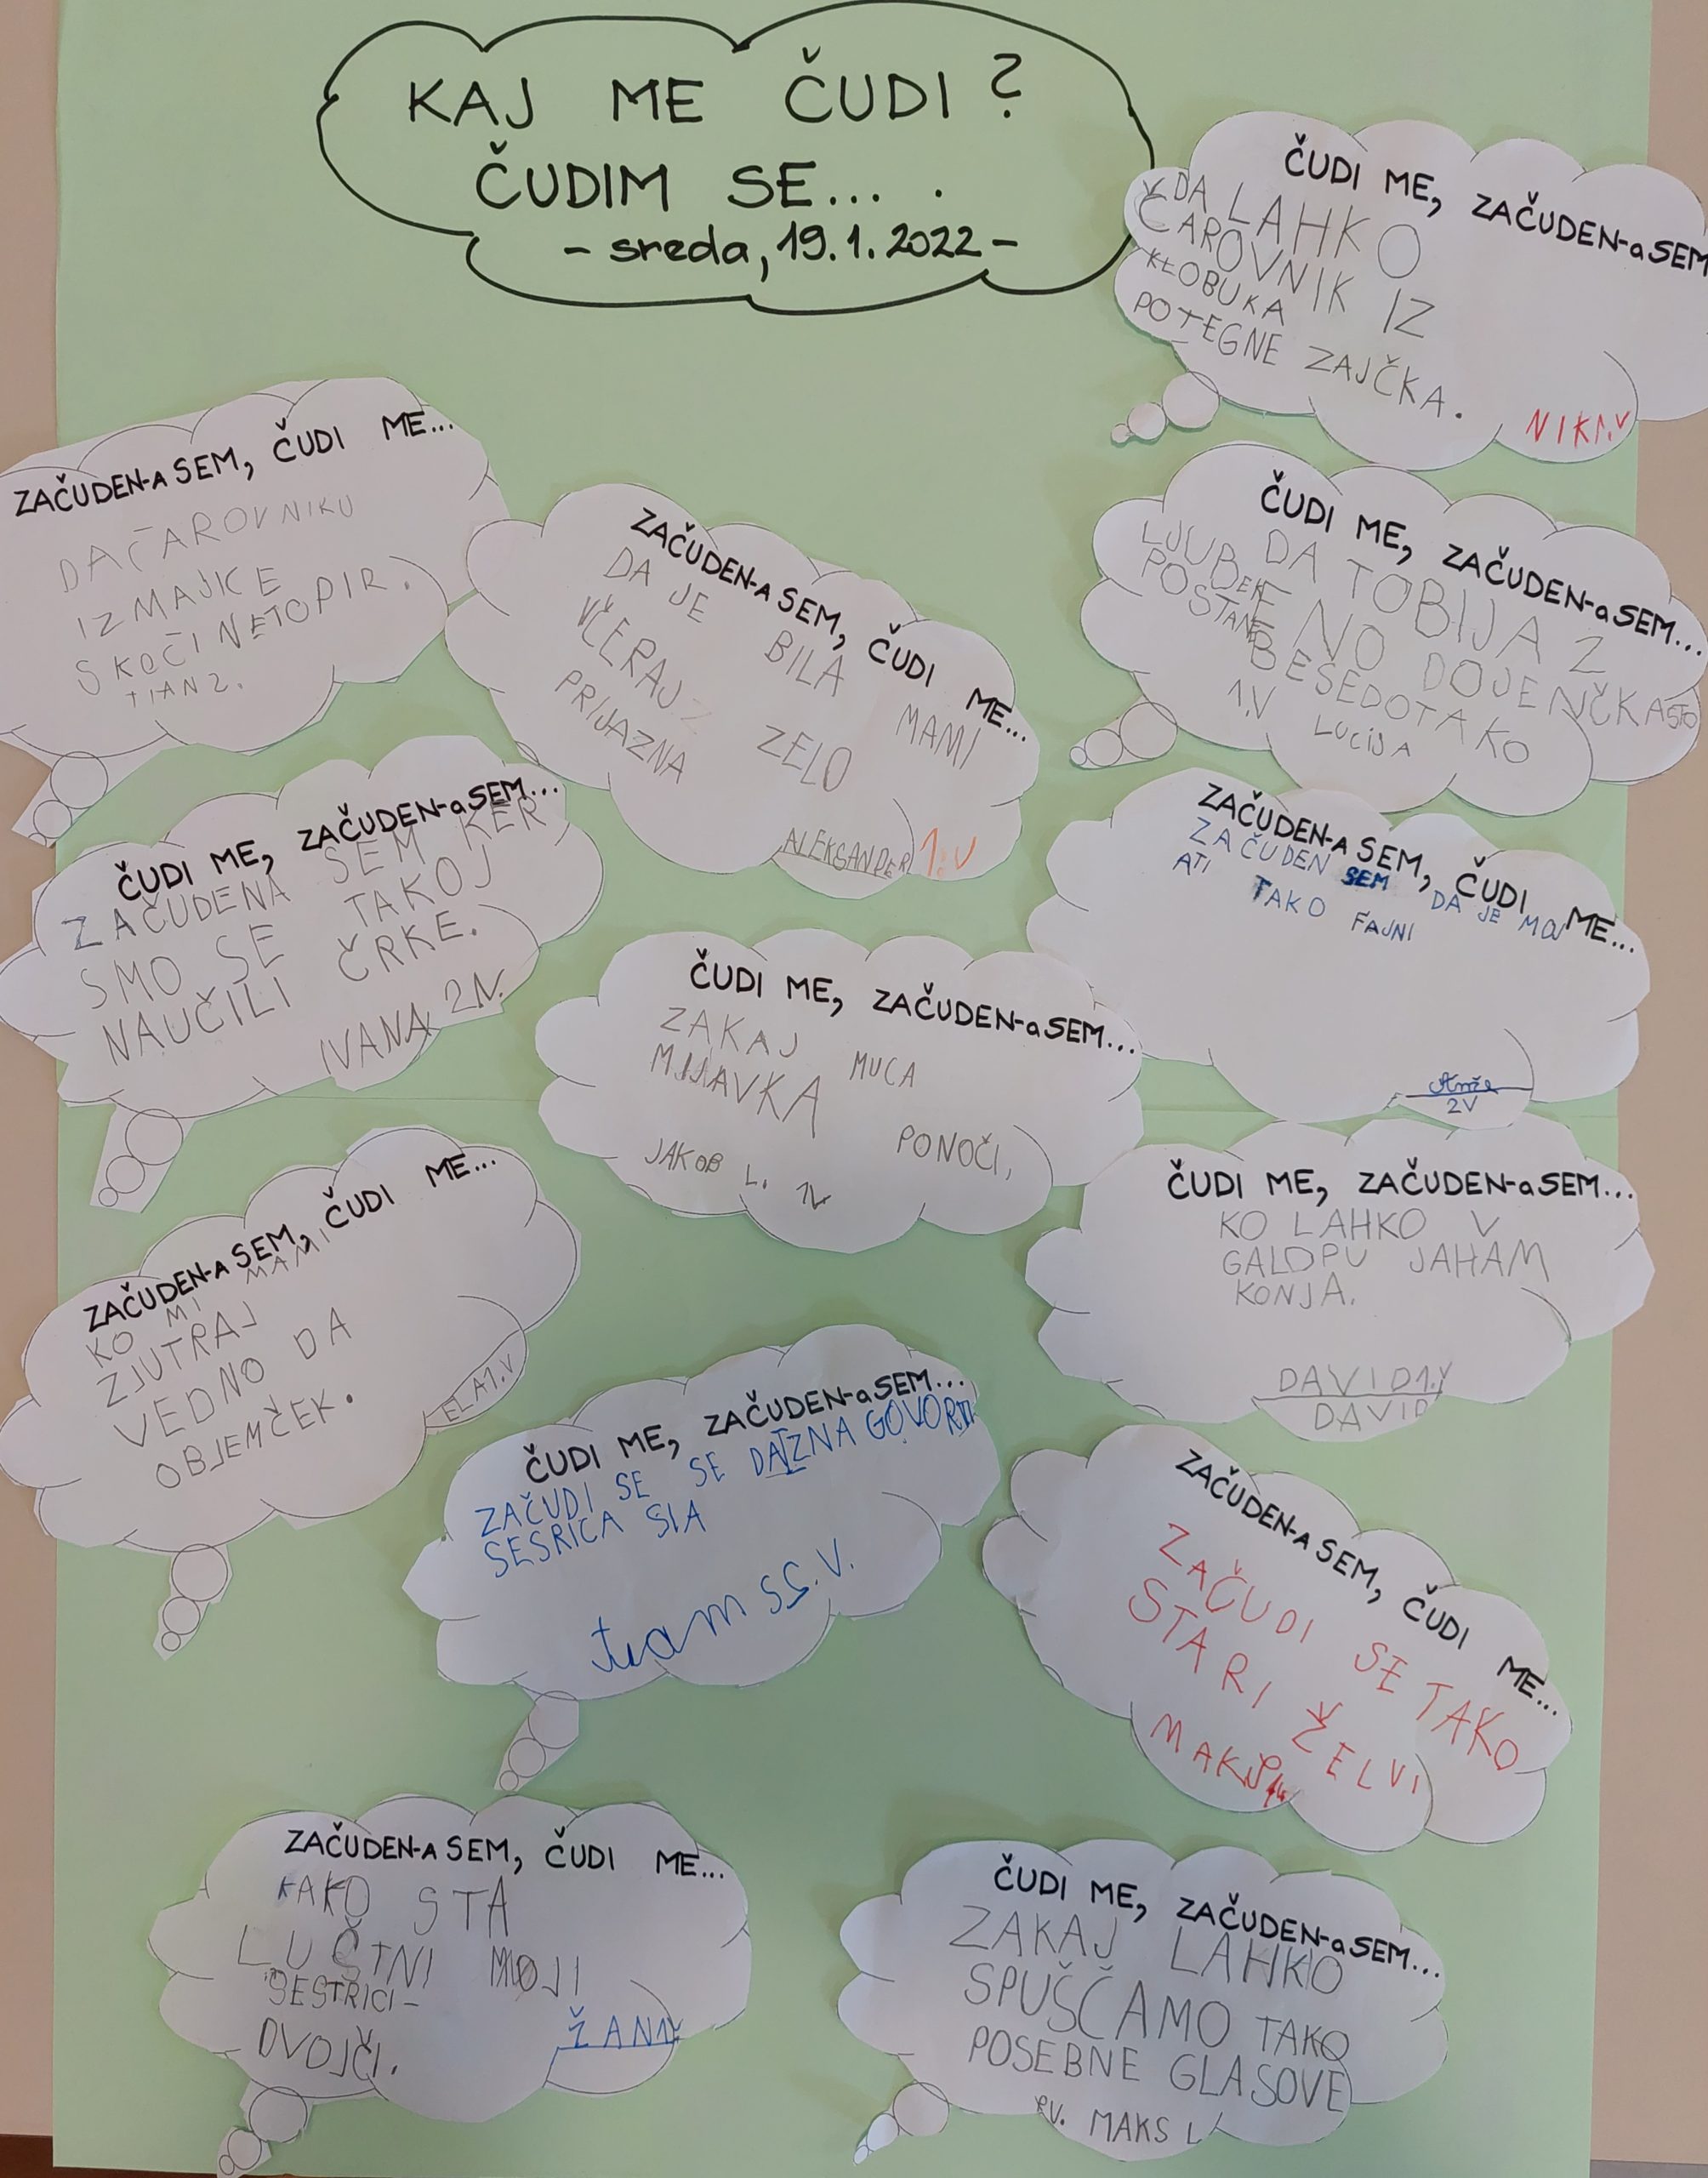 KAJ ME ČUDI?
ČUDIM SE...
- sreda, 19.1.2022 -
ČUDI ME, ZAČUDEN-a SEM
DA LAHKO
ČAROVNIK IZ
KLOBUKA
POTEGNE ZAJČKA.
ZAČUDEN-A SEM, ČUDI ME...
DA ČAROVNIKU
IZ MAJICE
SKOČI NETOPIR.
TIAN 2.
ZAČUDEN-A SEM, ČUDI ME...
DA JE BILA MAMI
VČERAJ ZELO
PRIJAZNA
ALEKSANDER 1.V
ČUDI ME, ZAČUDEN-a SEM...
DA TOBIJA Z
ENO DOJENČKASTO
BESEDO TAKO
LJUBEK
POSTANE
1.V LUCIJA
ČUDI ME, ZAČUDEN-a SEM...
ZAČUDENA SEM KER
SMO SE TAKOJ
NAUČILI ČRKE.
IVANA 2.V.
ZAČUDEN-A SEM, ČUDI ME...
ZAČUDEN SEM DA JE MOJ
ATI TAKO FAJNI
Anže
2V
ČUDI ME, ZAČUDEN-a SEM...
ZAKAJ MUCA
MIJAVKA
PONOČI,
JAKOB L. 1V
ZAČUDEN-A SEM, ČUDI ME...
KO MI MAMI
ZJUTRAJ
VEDNO DA
OBJEMČEK.
ELA 1.V
ČUDI ME, ZAČUDEN-a SEM...
KO LAHKO V
GALOPU JAHAM
KONJA.
DAVID 1.V
DAVID
ČUDI ME, ZAČUDEN-a SEM...
ZAČUDI SE SE DA ZNA GOVORITI
SESRICA SIA
ZAČUDEN-A SEM, ČUDI ME...
ZAČUDI SE TAKO
STARI ŽELVI
ZAČUDEN-A SEM, ČUDI ME...
KAKO STA
LUČTNI MOJI
SESTRICI-
DVOJČI.
ŽAN 1.V
ČUDI ME, ZAČUDEN-a SEM...
ZAKAJ LAHKO
SPUŠČAMO TAKO
POSEBNE GLASOVE
MAKS L